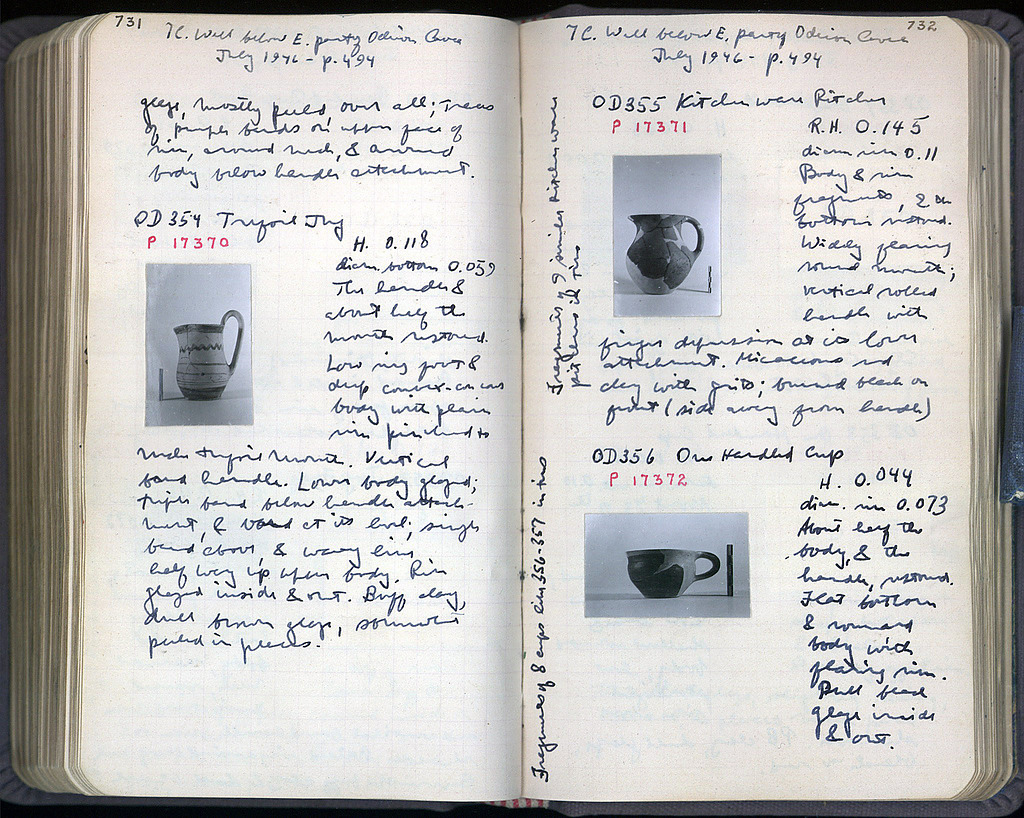 731
7C. Well below E. part of Odeion Cavea
July 1946 - p. 494
glaze, mostly peeled, over all; traces
of purple bands on upper face of
rim, around neck, & around
body below handle attachment.
OD 354 Trefoil Jug
P 17370
H. 0.118
diam. bottom 0.059
The handle &
about half the
mouth restored.
Low ring foot &
deep convex-concave
body with plain
rim pinched to
make trefoil mouth. Vertical
band handle. Lower body glazed;
triple band below handle attach-
ment, & band at its level; single
band above, & wavy line
half way up upper body. Rim
glazed inside & out. Buff clay,
dull brown glaze, somewhat
peeled in places.
732
7C. Well below E. part of Odeion Cavea
July 1946 - p. 494
OD355 Kitchen ware Pitcher
P 17371
R.H. 0.145
diam. rim 0.11
Body & rim
fragments, & the
bottom restored.
Widely flaring
round mouth;
vertical rolled
handle with
finger depression at its lower
attachment. Micaceous red
clay with grits; burned black on
front (side away from handle)
Fragments of 9 similar kitchen ware
pitchers in tins
OD356 One Handled Cup
P 17372
H. 0.044
diam. rim 0.073
About half the
body, & the
handle, restored.
Flat bottom
& round
body with
flaring rim.
Dull black
glaze inside
& out.
Fragments of 8 cups like 356-357 in tins